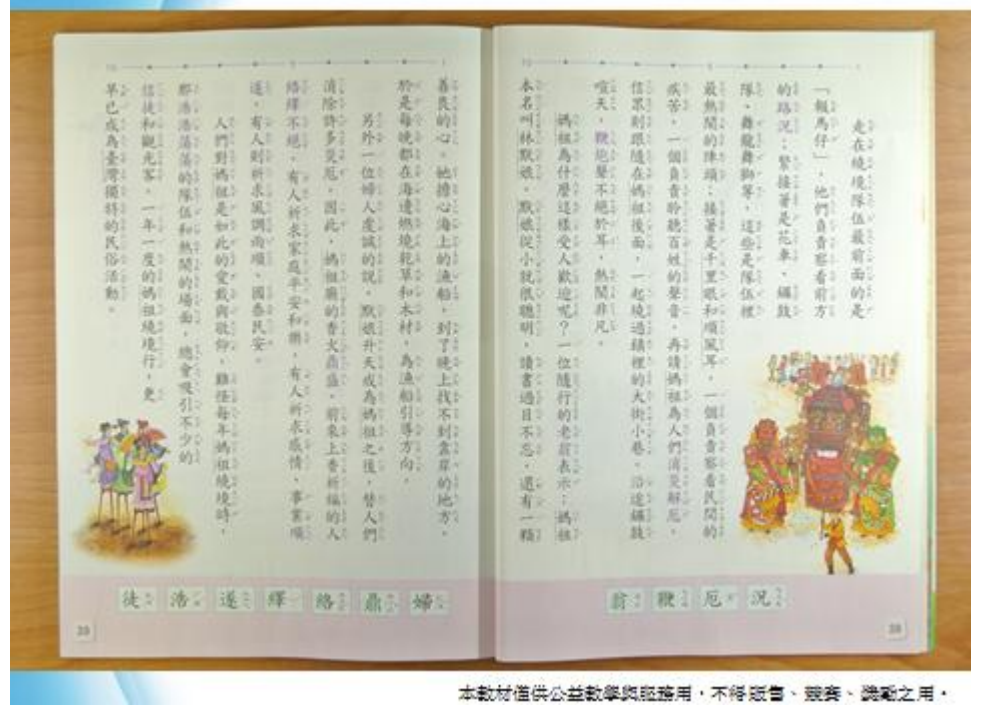 走在繞境隊伍最前面的是
「報馬仔」,他們負責察看前方
的路況;緊接著是花車、鑼鼓
隊、舞龍舞獅等,這些是隊伍裡
最熱鬧的陣頭;接著是千里眼和順風耳,一個負責察看民間的
疾苦,一個負責聆聽百姓的聲音,再請媽祖為人們消災解厄。
信眾則跟隨在媽祖後面,一起繞過鎮裡的大街小巷。沿途鑼鼓
喧天,鞭炮聲不絕於耳,熱鬧非凡。
媽祖為什麼這樣受人歡迎呢?一位隨行的老翁表示:媽祖
本名叫林默娘。默娘從小就很聰明,讀書過目不忘,還有一顆
況 厄 鞭 翁
38
善良的心。她擔心海上的漁船,到了晚上找不到靠岸的地方,
於是每晚都在海邊燃燒乾草和木材,為漁船引導方向。
另外一位婦人虔誠的說,默娘升天成為媽祖之後,替人們
消除許多災厄,因此,媽祖廟的香火鼎盛,前來上香祈福的人
絡繹不絕,有人祈求家庭平安和樂,有人祈求感情、事業順
遂,有人則祈求風調雨順、國泰民安。
人們對媽祖是如此的愛戴與敬仰,難怪每年媽祖繞境時,
那浩浩蕩蕩的隊伍和熱鬧的場面,總會吸引不少的
信徒和觀光客。一年一度的媽祖繞境行,更
早已成為臺灣獨特的民俗活動。
婦 鼎 絡 繹 遂 浩 徒
39
本教材僅供公益教學與服務用,不得販售、競賽、獎勵之用。